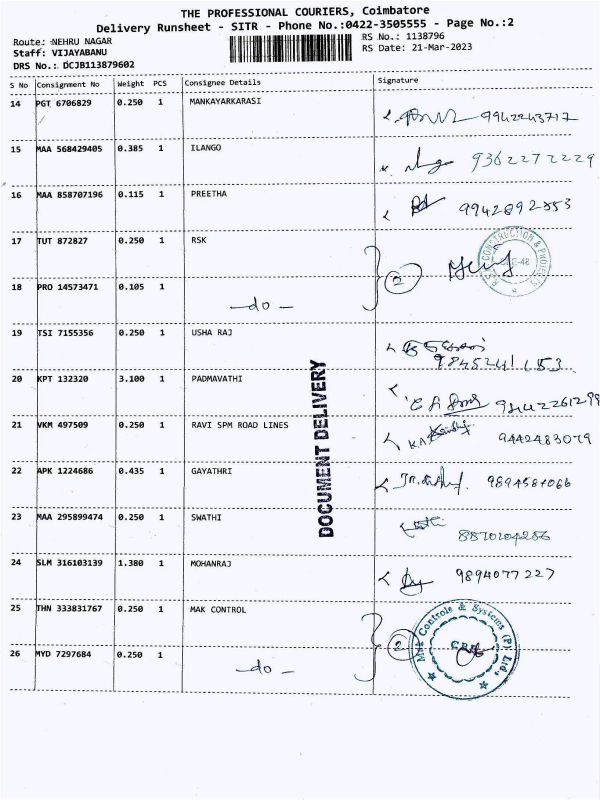 THE PROFESSIONAL COURIERS, Coimbatore
Delivery Runsheet - SITR - Phone No.:0422-3505555 - Page No.:2
Route: NEHRU NAGAR RS No.: 1138796
Staff: VIJAYABANU RS Date: 21-Mar-2023
DRS No.: DCJB113879602
S No Consignment No Weight PCS Consignee Details Signature
14 PGT 6706829 0.250 1 MANKAYARKARASI 9942243717
15 MAA 568429405 0.385 1 ILANGO 9362272229
16 MAA 858707196 0.115 1 PREETHA 9942892853
17 TUT 872827 0.250 1 RSK
CONSTRUCTION & PROJECTS
2
18 PRO 14573471 0.105 1 -do-
19 TSI 7155356 0.250 1 USHA RAJ
20 KPT 132320 3.100 1 PADMAVATHI
21 VKM 497509 0.250 1 RAVI SPM ROAD LINES 9442483079
22 APK 1224686 0.435 1 GAYATHRI 9894584066
23 MAA 295899474 0.250 1 SWATHI
24 SLM 316103139 1.380 1 MOHANRAJ 9894077227
DOCUMENT DELIVERY
25 THN 333831767 0.250 1 MAK CONTROL
Mak Controls & Systems (P) Ltd.,
2
26 MYD 7297684 0.250 1 -do-